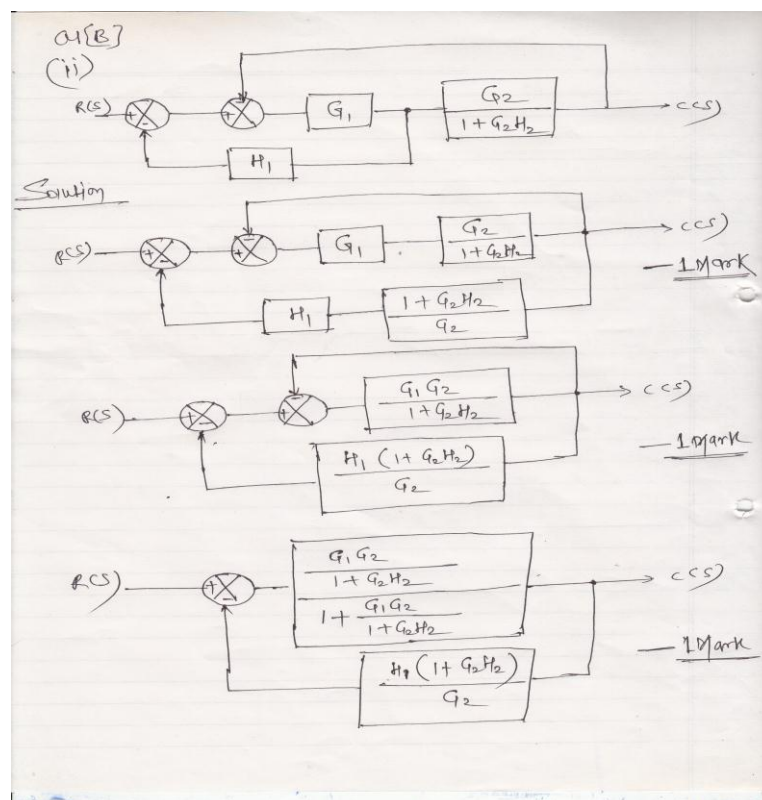 Q1[B]
(ii)
R(S) + - + - G1 G2 / 1 + G2H2 C(S)
H1
Solution
R(S) + - + - G1 G2 / 1 + G2H2 C(S)
— 1 Mark
H1 1 + G2H2 / G2
R(S) + - + - G1 G2 / 1 + G2H2 C(S)
— 1 Mark
H1 (1 + G2H2) / G2
R(S) + - G1 G2 / 1 + G2H2 C(S)
1 + G1G2 / 1 + G2H2
— 1 Mark
H1 (1 + G2H2) / G2